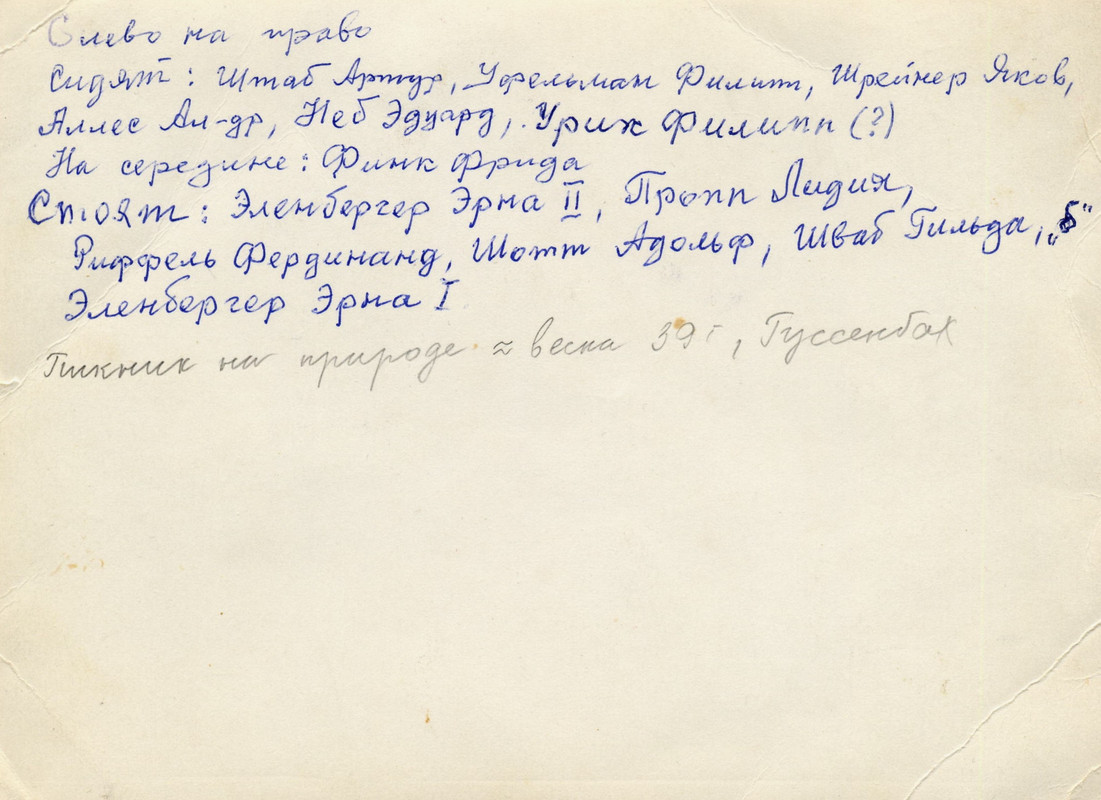 Слево на право
Сидят: Штаб Артур, Уфельман Филипп, Шрейнер Яков,
Аллес Ал-др, Неб Эдуард, Урих Филипп (?)
На середине: Финк Фрида
Стоят: Эленбергер Эрна II, Пропп Лидия,
Риффель Фердинанд, Шотт Адольф, Шваб Гильда, „б"
Эленбергер Эрна I
Пикник на природе ≈ весна 39 г, Гуссенбах